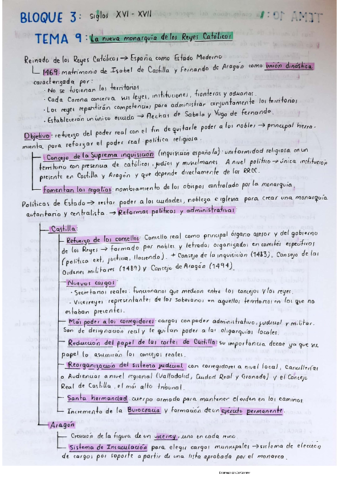 BLOQUE 3: siglos XVI - XVII
TEMA 9: La nueva monarquía de los Reyes Católicos
Reinado de los Reyes Católicos → España como Estado Moderno
1469 matrimonio de Isabel de Castilla y Fernando de Aragón como unión dinástica
caracterizada por:
- No se fusionan los territorios
- Cada Corona conserva sus leyes, instituciones, fronteras y aduanas.
- Los reyes repartirán competencias para administrar conjuntamente los territorios
- Establecerán un único escudo → Flechas de Isabela y Yugo de Fernando.
Objetivo: refuerzo del poder real con el fin de quitarle poder a los nobles → principal herra-
mienta, para reforzar el poder real política religiosa
Consejo de la Suprema inquisición (inquisición española): uniformidad religiosa en un
territorio con presencia de católicos, judíos y musulmanes. A nivel político → única institución
presente en Castilla y Aragón y que depende directamente de los RRCC.
Fomentan las regalías nombramiento de los obispos controlado por la monarquía.
Políticas de Estado → restar poder a las ciudades, nobleza e iglesia para crear una monarquía
autoritaria y centralista → Reformas políticas y administrativas
Castilla
Refuerzo de los concilios Consilio real como principal órgano asesor y del gobierno
de los Reyes → formado por nobles y letrados organizados en comités específicos
(política ext, justicia, llacenda). + Consejo de la inquisición (1483), Consejo de las
Ordenes militares (1489) y Consejo de Aragón (1494).
Nuevos cargos
- Secretarios reales: funcionarios que median entre los consejos y los reyes.
- Vicereyes representantes de los soberanos en aquellos territorios en los que no
estaban presentes.
Más poder a los corregidores cargos con poder administrativo, judicial y militar.
Son de designación real y le quitan poder a las oligarquías locales.
Reducción del papel de las cortes de Castilla su importancia decae ya que su
papel lo asumirán los consejos reales.
Reorganización del sistema judicial con corregidores a nivel local, Cancillerías
o Audiencias a nivel regional (Valladolid, Ciudad Real y Granada) y el Consejo
Real de Castilla, el más alto tribunal.
Santa hermandad cuerpo armado para mantener el orden en los caminos
Incremento de la Burocracia y formación de un ejército permanente
Aragón
Creación de la figura de un virrey, uno en cada reino
Sistema de Insaculación para elegir cargos municipales → sistema de elección
de cargos por sorteo a partir de una lista aprobada por el monarca.